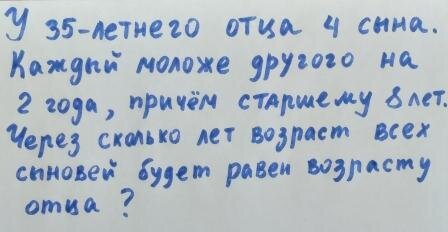 У 35-летнего отца 4 сына.
Каждый моложе другого на
2 года, причём старшему 8 лет.
Через сколько лет возраст всех
сыновей будет равен возрасту
отца ?